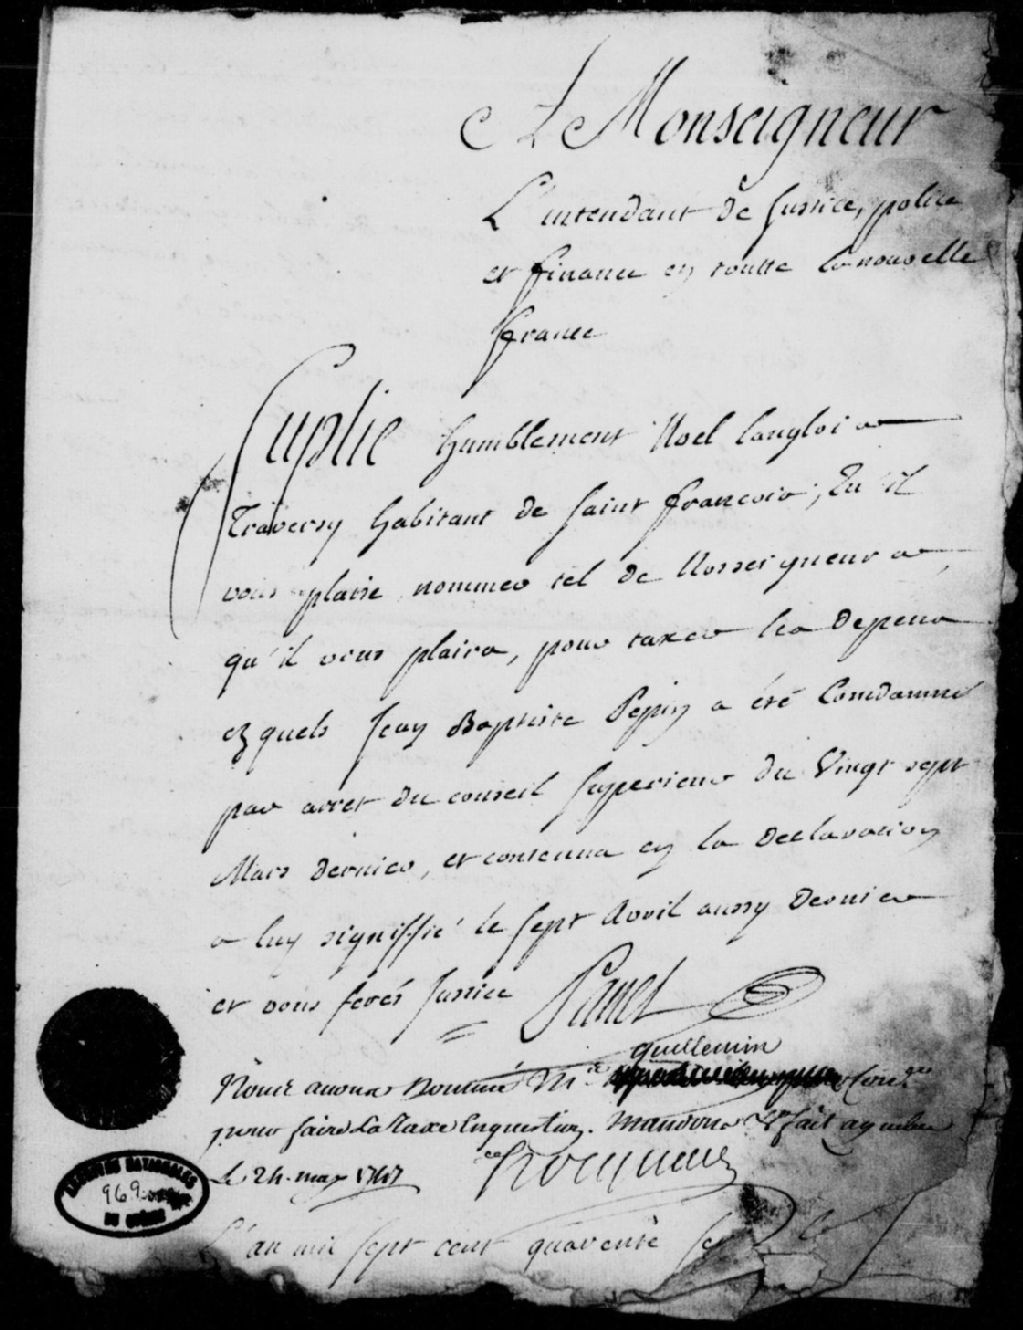 A Monseigneur
L'intendant de Justice, police
et finance en toutte la nouvelle
france
Suplie humblement Noel Langlois
Traversy habitant de Saint François, Qu'il
vous plaise nommer tel de Nosseigneurs
qu'il vous plaira, pour taxer les depens
ezquels Jean Baptiste Pepin a été Condamné
par arret du conseil Superieur du Vingt sept
Mars dernier, et contenus en la declaration
a luy signiffié le Sept Avril aussy dernier
et vous ferés Justice Panet
guillemin
Nous avons Nommé Mr. Coner
pour faire La Taxe En question. Mandons &c fait a quebec
Le 24. may 1747
hocquart
ARCHIVES NATIONALES
969
DU QUÉBEC
L'an mil sept cent quarente Sept Le